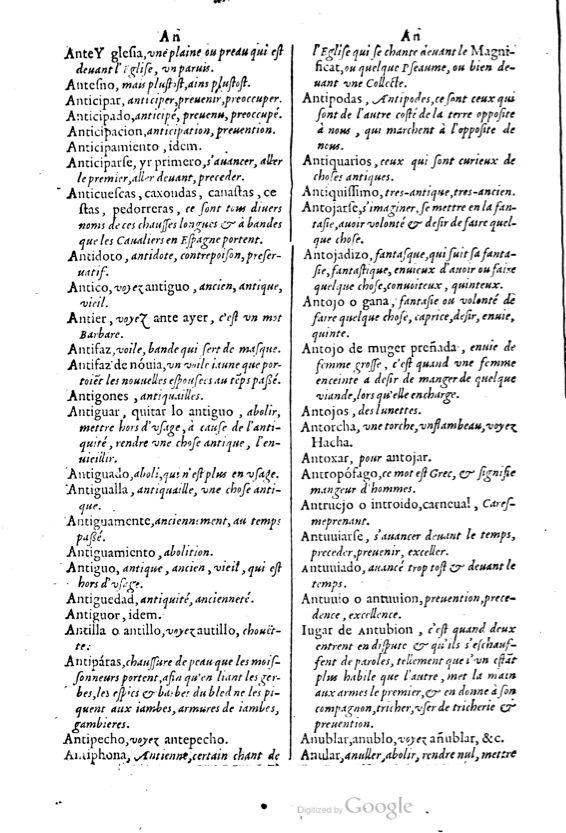 An
AnteY glesia, vne plaine ou preau qui est
deuant l'Eglise, vn paruis.
Antesno, mais plustost, ains plustost.
Anticipar, anticiper, preuenir, preoccuper.
Anticipado, anticipé, preuenu, preoccupé.
Anticipacion, anticipation, preuention.
Anticipamiento, idem.
Anticiparse, yr primero, s'auancer, aller
le premier, aller deuant, preceder.
Anticuescas, caxondas, canastas, ce
stas, pedorreras, ce sont tous diuers
noms de ces chausses longues & à bandes
que les Caualiers en Espagne portent.
Antidoto, antidote, contrepoison, preser-
uatif.
Antico, voyez antiguo, ancien, antique,
vieil.
Antier, voyez ante ayer, c'est vn mot
Barbare.
Antifaz, voile, bande qui sert de masque.
Antifaz de nóuia, vn voile iaune que por-
toiēt les nouuelles espousees au tēps passé.
Antigones, antiquailles.
Antiguar, quitar lo antiguo, abolir,
mettre hors d'vsage, à cause de l'anti-
quité, rendre vne chose antique, l'en-
uieillir.
Antiguado, aboli, qui n'est plus en vsage.
Antigualla, antiquaille, vne chose anti-
que.
Antiguamente, anciennement, au temps
passé.
Antiguamiento, abolition.
Antiguo, antique, ancien, vieil, qui est
hors d'vsage.
Antiguedad, antiquité, ancienneté.
Antiguor, idem.
Antilla o antillo, voyez autillo, chouët-
te.
Antipáras, chaussure de peau que les mois-
sonneurs portent, afin qu'en liant les ger-
bes, les espics & barbes du bled ne les pi-
quent aux iambes, armures de iambes,
gambieres.
Antipecho, voyez antepecho.
Antiphona, Antienne, certain chant de
An
l'Eglise qui se chante deuant le Magni-
ficat, ou quelque Pseaume, ou bien de-
uant vne Collecte.
Antipodas, Antipodes, ce sont ceux qui
sont de l'autre costé de la terre opposite
à nous, qui marchent à l'opposite de
nous.
Antiquarios, ceux qui sont curieux de
choses antiques.
Antiquissimo, tres-antique, tres-ancien.
Antojarse, s'imaginer, se mettre en la fan-
tasie, auoir volonté & desir de faire quel-
que chose.
Antojadizo, fantasque, qui suit sa fanta-
sie, fantastique, enuieux d'auoir ou faire
quelque chose, conuoiteux, quinteux.
Antojo o gana, fantasie ou volonté de
faire quelque chose, caprice, desir, enuie,
quinte.
Antojo de muger preñada, enuie de
femme grosse, c'est quand vne femme
enceinte a desir de manger de quelque
viande, lors qu'elle encharge.
Antojos, des lunettes.
Antorcha, vne torche, vn flambeau, voyez
Hacha.
Antoxar, pour antojar.
Antropófago, ce mot est Grec, & signifie
mangeur d'hommes.
Antruejo o introido, carneual, Cares-
meprenant.
Antuuiarse, s'auancer deuant le temps,
preceder, preuenir, exceller.
Antuuiado, auancé trop tost & deuant le
temps.
Antuuio o antuuion, preuention, prece-
dence, excellence.
Iugar de Antubion, c'est quand deux
entrent en dispute & qu'ils s'eschauf-
fent de paroles, tellement que l'vn estāt
plus habile que l'autre, met la main
aux armes le premier, & en donne à son
compagnon, tricher, vser de tricherie &
preuention.
Anublar, anublo, voyez añublar, &c.
Anular, anuller, abolir, rendre nul, mettre
Digitized by Google